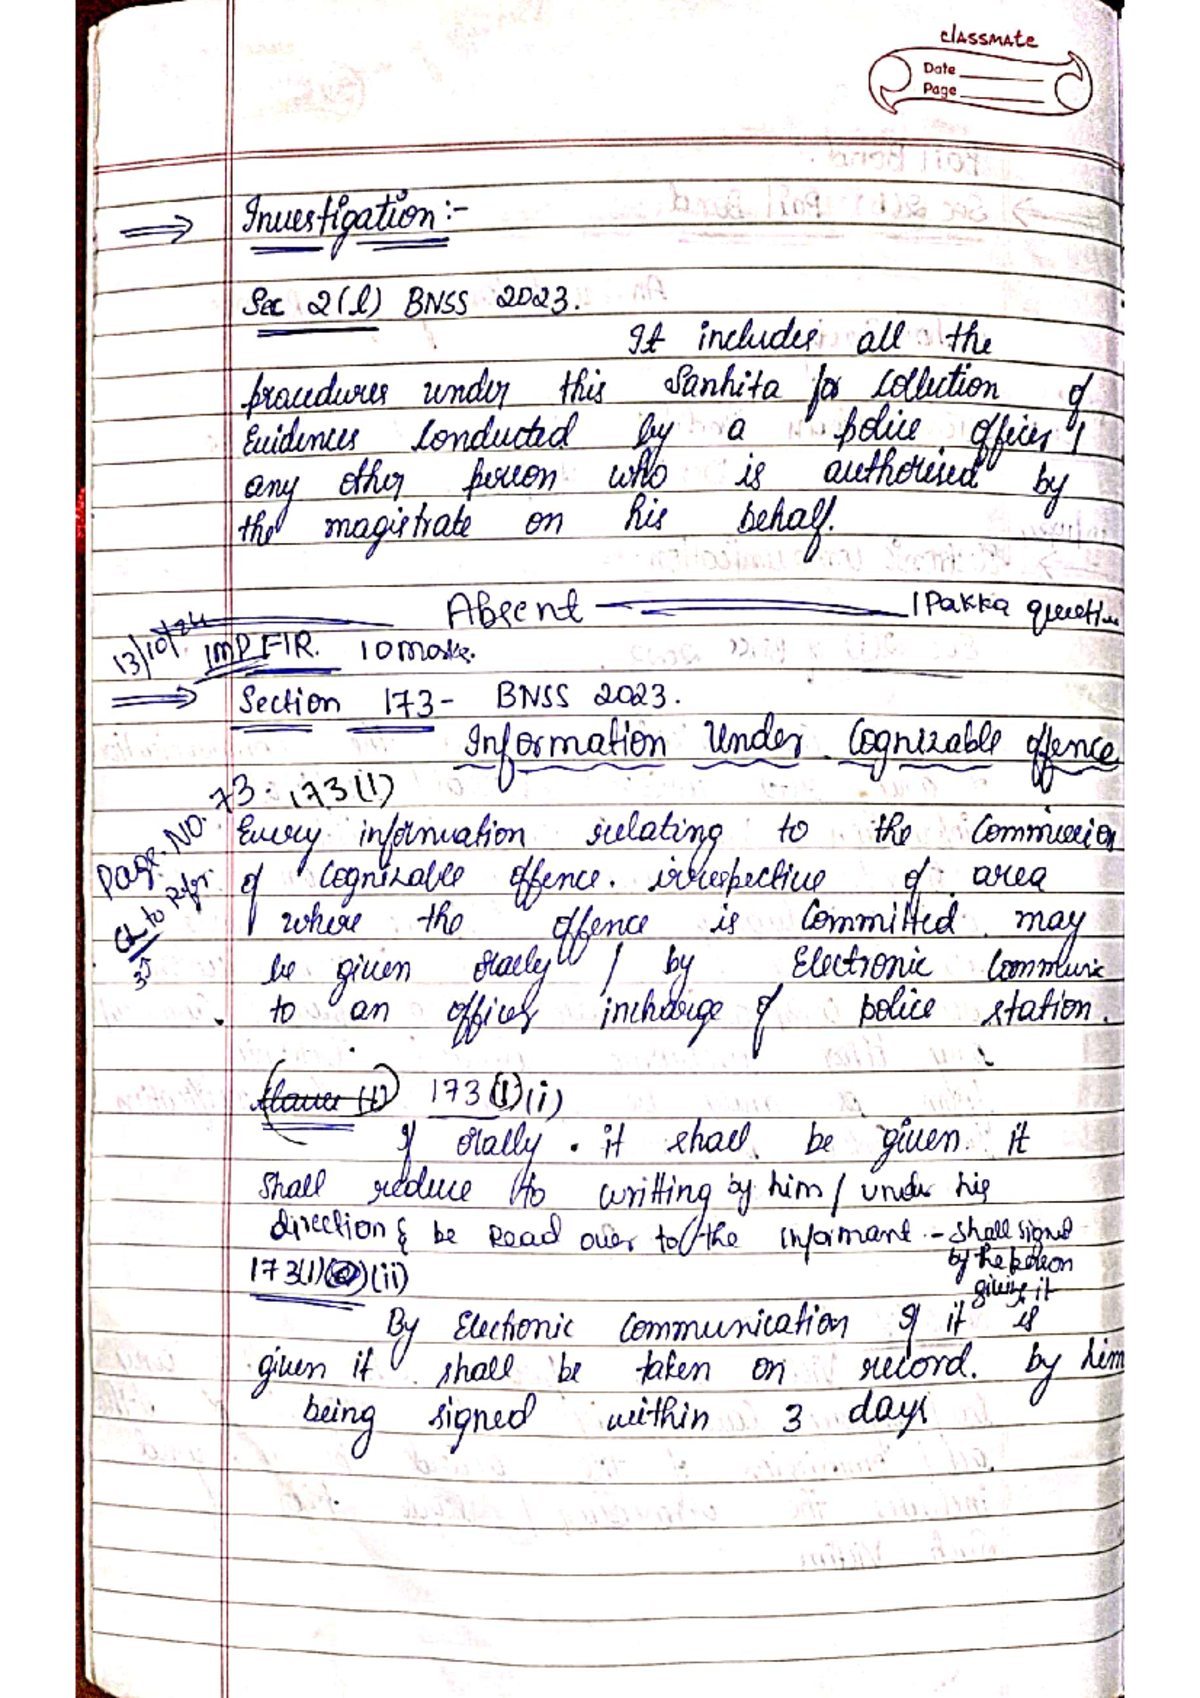 classmate
Date
Page
Investigation:-
Sec 2(l) BNSS 2023.
It includes all the
procedures under this Sanhita for Collection of
Evidences Conducted by a police officer /
any other person who is authorised by
the magistrate on his behalf.
Absent 1 Pakka questi
13/10/24
IMP FIR. 10 marks.
Section 173- BNSS 2023.
Information Under Cognizable offence
Page. No. 73. 173(1)
Every information relating to the Commission
of Cognizable offence. irrespective of area
where the offence is Committed may
be given orally / by Electronic Communic
to an officer incharge of police station.
to Refer
35
Clause (i) 173(1)(i)
If orally . it shall be given. it
Shall reduce to writting by him / under his
direction & be Read over to the informant - shall signed
by the person
giving it
173(1)(ii)
By Electronic Communication If it is
given it shall be taken on record. by him
being signed within 3 days